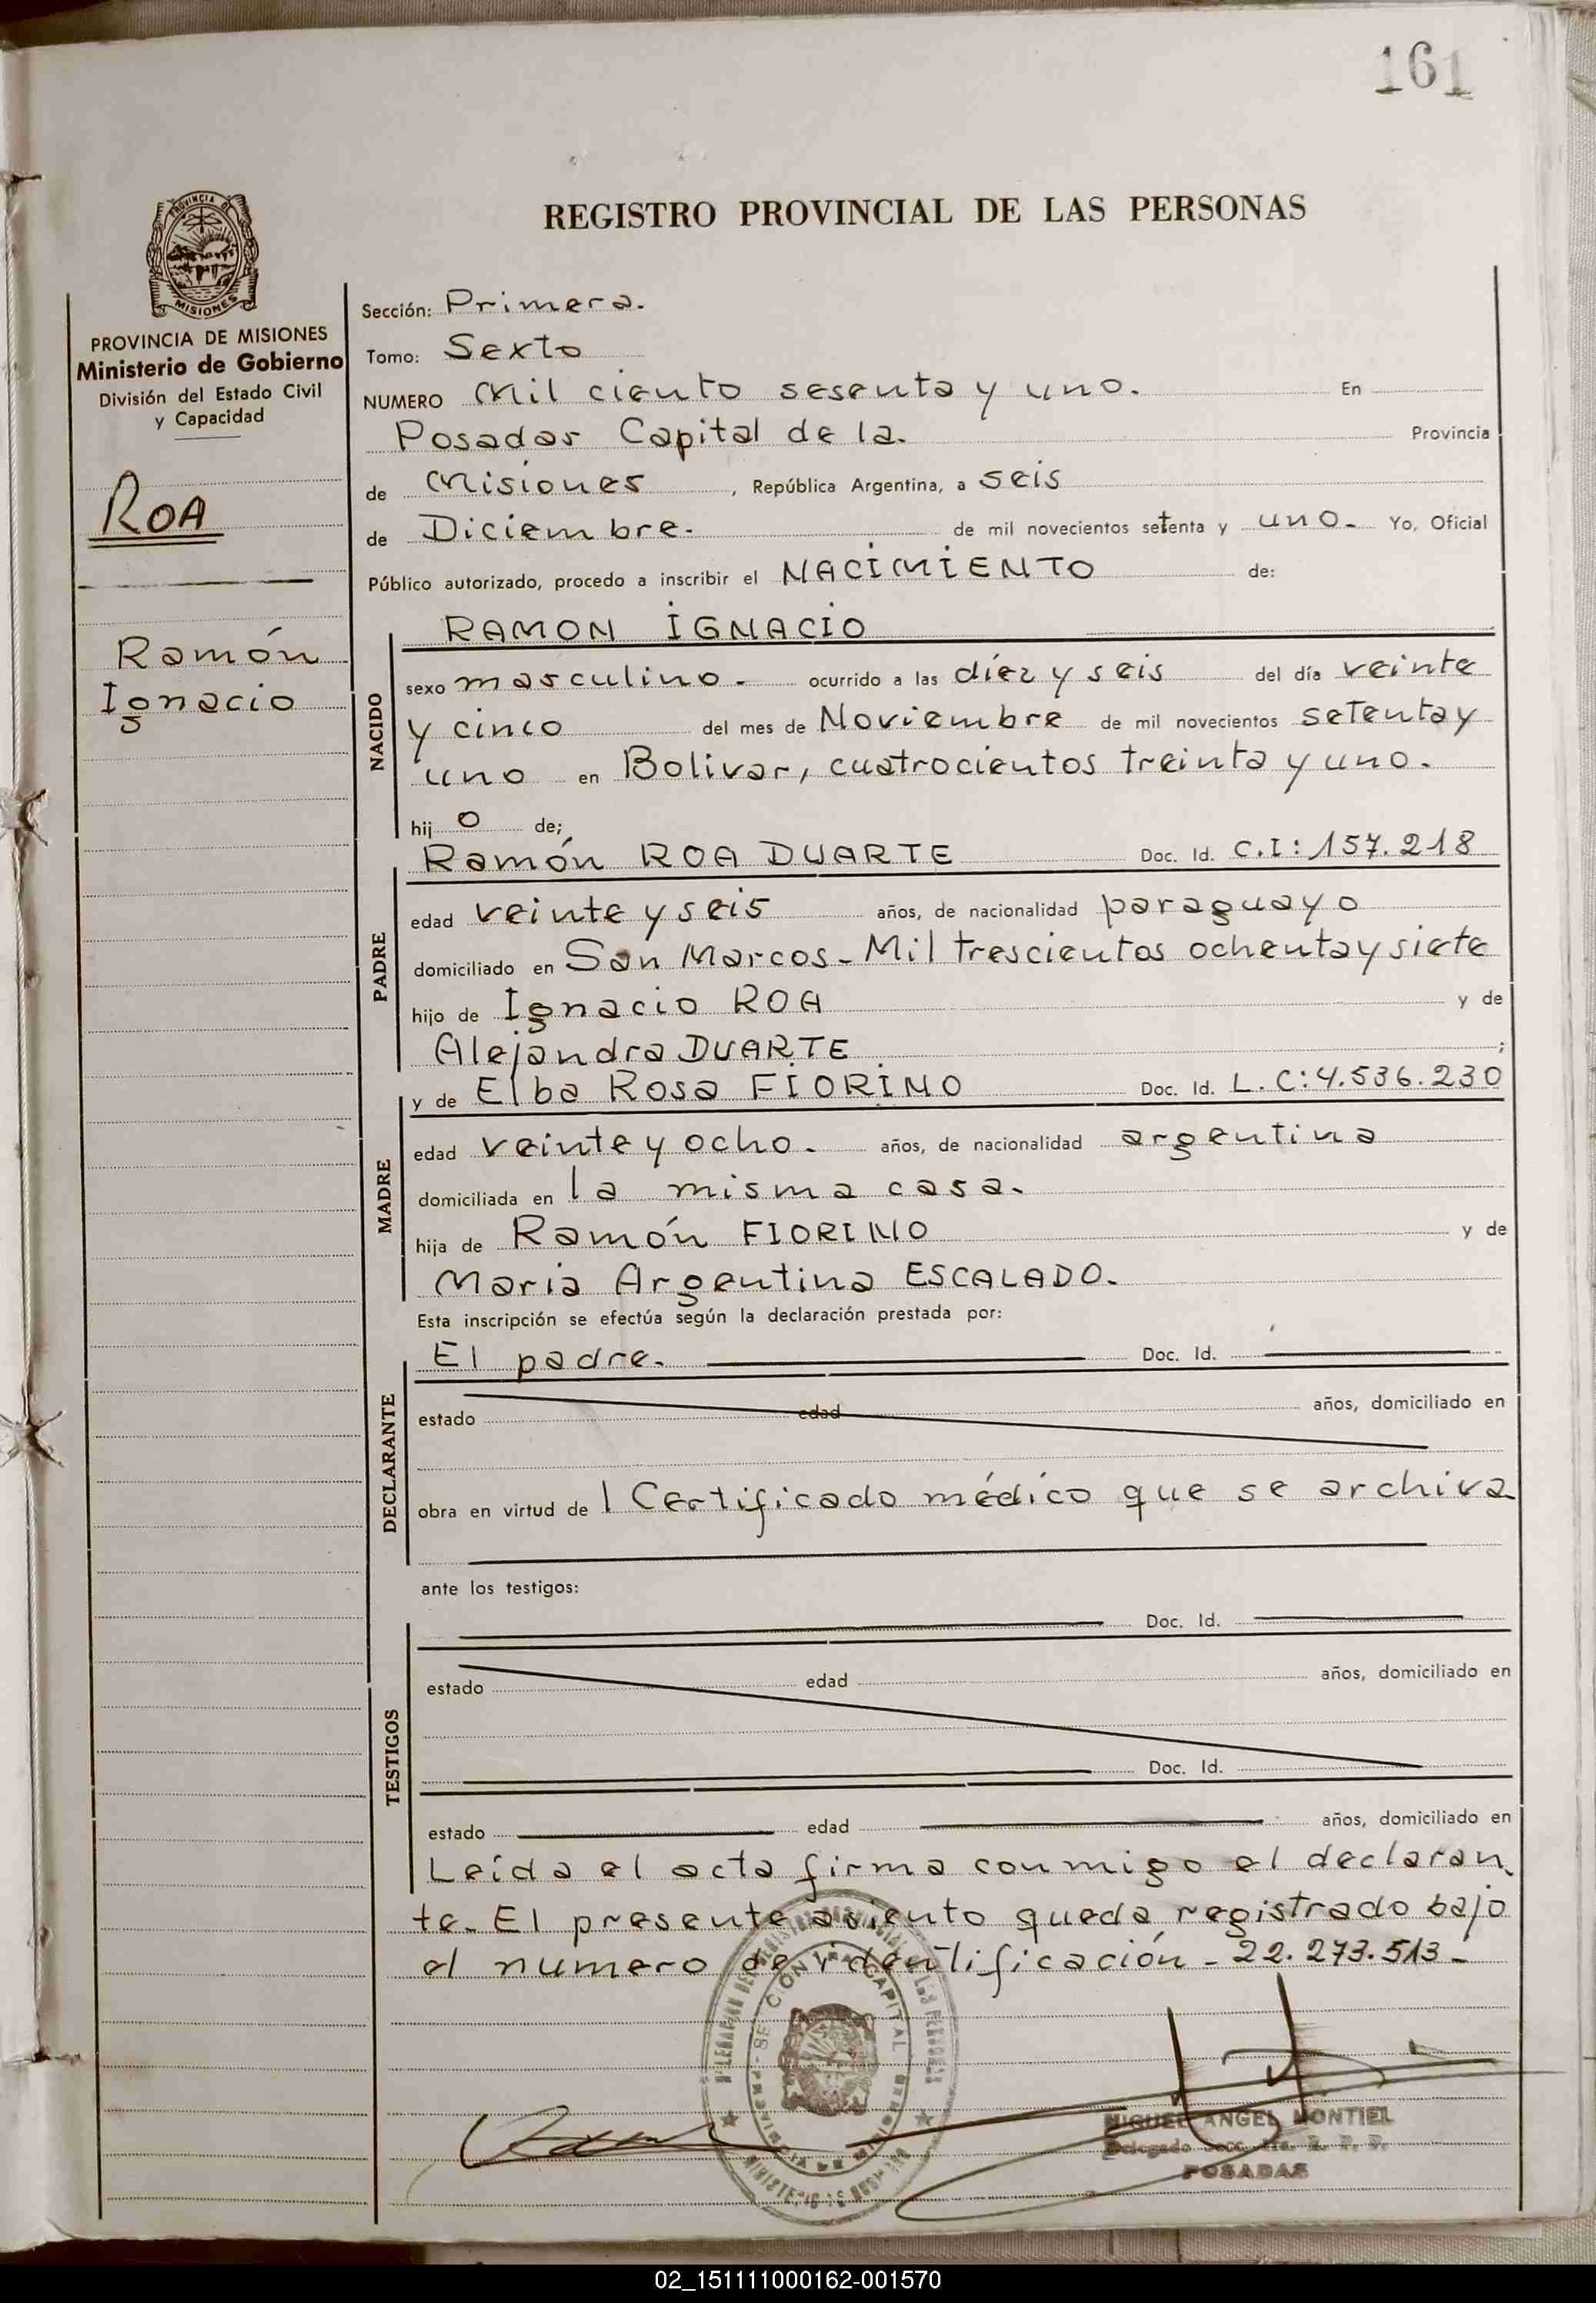 161
REGISTRO PROVINCIAL DE LAS PERSONAS
PROVINCIA DE MISIONES
Ministerio de Gobierno
División del Estado Civil
y Capacidad
ROA
Ramón
Ignacio
Sección: Primera.
Tomo: Sexto
NUMERO Mil ciento sesenta y uno. En
Posadas Capital de la. Provincia
de Misiones, República Argentina, a seis
de Diciembre. de mil novecientos setenta y uno. Yo, Oficial
Público autorizado, procedo a inscribir el NACIMIENTO de:
RAMON IGNACIO
NACIDO
sexo masculino. ocurrido a las díez y seis del día veinte
y cinco del mes de Noviembre de mil novecientos setenta y
uno en Bolivar, cuatrocientos treinta y uno.
hijo de;
Ramón ROA DUARTE Doc. Id. C.I: 157.218
PADRE
edad veinte y seis años, de nacionalidad paraguayo
domiciliado en San Marcos - Mil trescientos ochenta y siete
hijo de Ignacio ROA y de
Alejandra DUARTE ;
y de Elba Rosa FIORINO Doc. Id. L.C: 4.536.230
MADRE
edad veinte y ocho. años, de nacionalidad argentina
domiciliada en la misma casa.
hija de Ramón FIORINO y de
Maria Argentina ESCALADO.
Esta inscripción se efectúa según la declaración prestada por:
El padre. Doc. Id.
DECLARANTE
estado edad años, domiciliado en
obra en virtud del Certificado médico que se archiva
ante los testigos:
Doc. Id.
TESTIGOS
estado edad años, domiciliado en
Doc. Id.
estado edad años, domiciliado en
Leída el acta firma conmigo el declaran
te. El presente asiento queda registrado bajo
el numero de identificación - 22.273.513 -
MIGUEL ANGEL MONTIEL
Delegado Secc. 1ra. R. P. P.
POSADAS
02_151111000162-001570